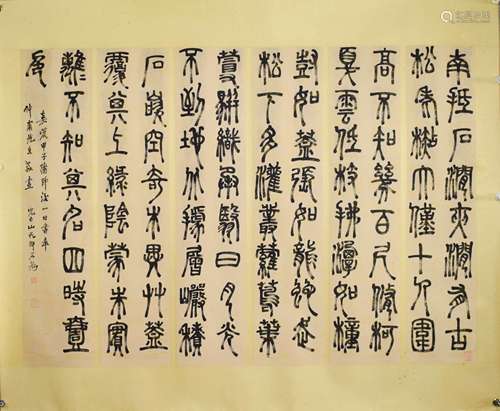 南抵石澗夾澗有古
松老杉大僅十人圍
高不知幾百尺修柯
戛雲低枝拂潭如幢
豎如蓋張如龍蛇走
松下多灌叢蘿蔦葉
蔓駢織承翳日月光
不到地北據層巖積
石嵌空奇木異艸蓋
覆其上綠陰蒙朱實
離不知其名四時壹
色
嘉慶甲子 一日書奉
仲甫先生 完白山民鄧石如